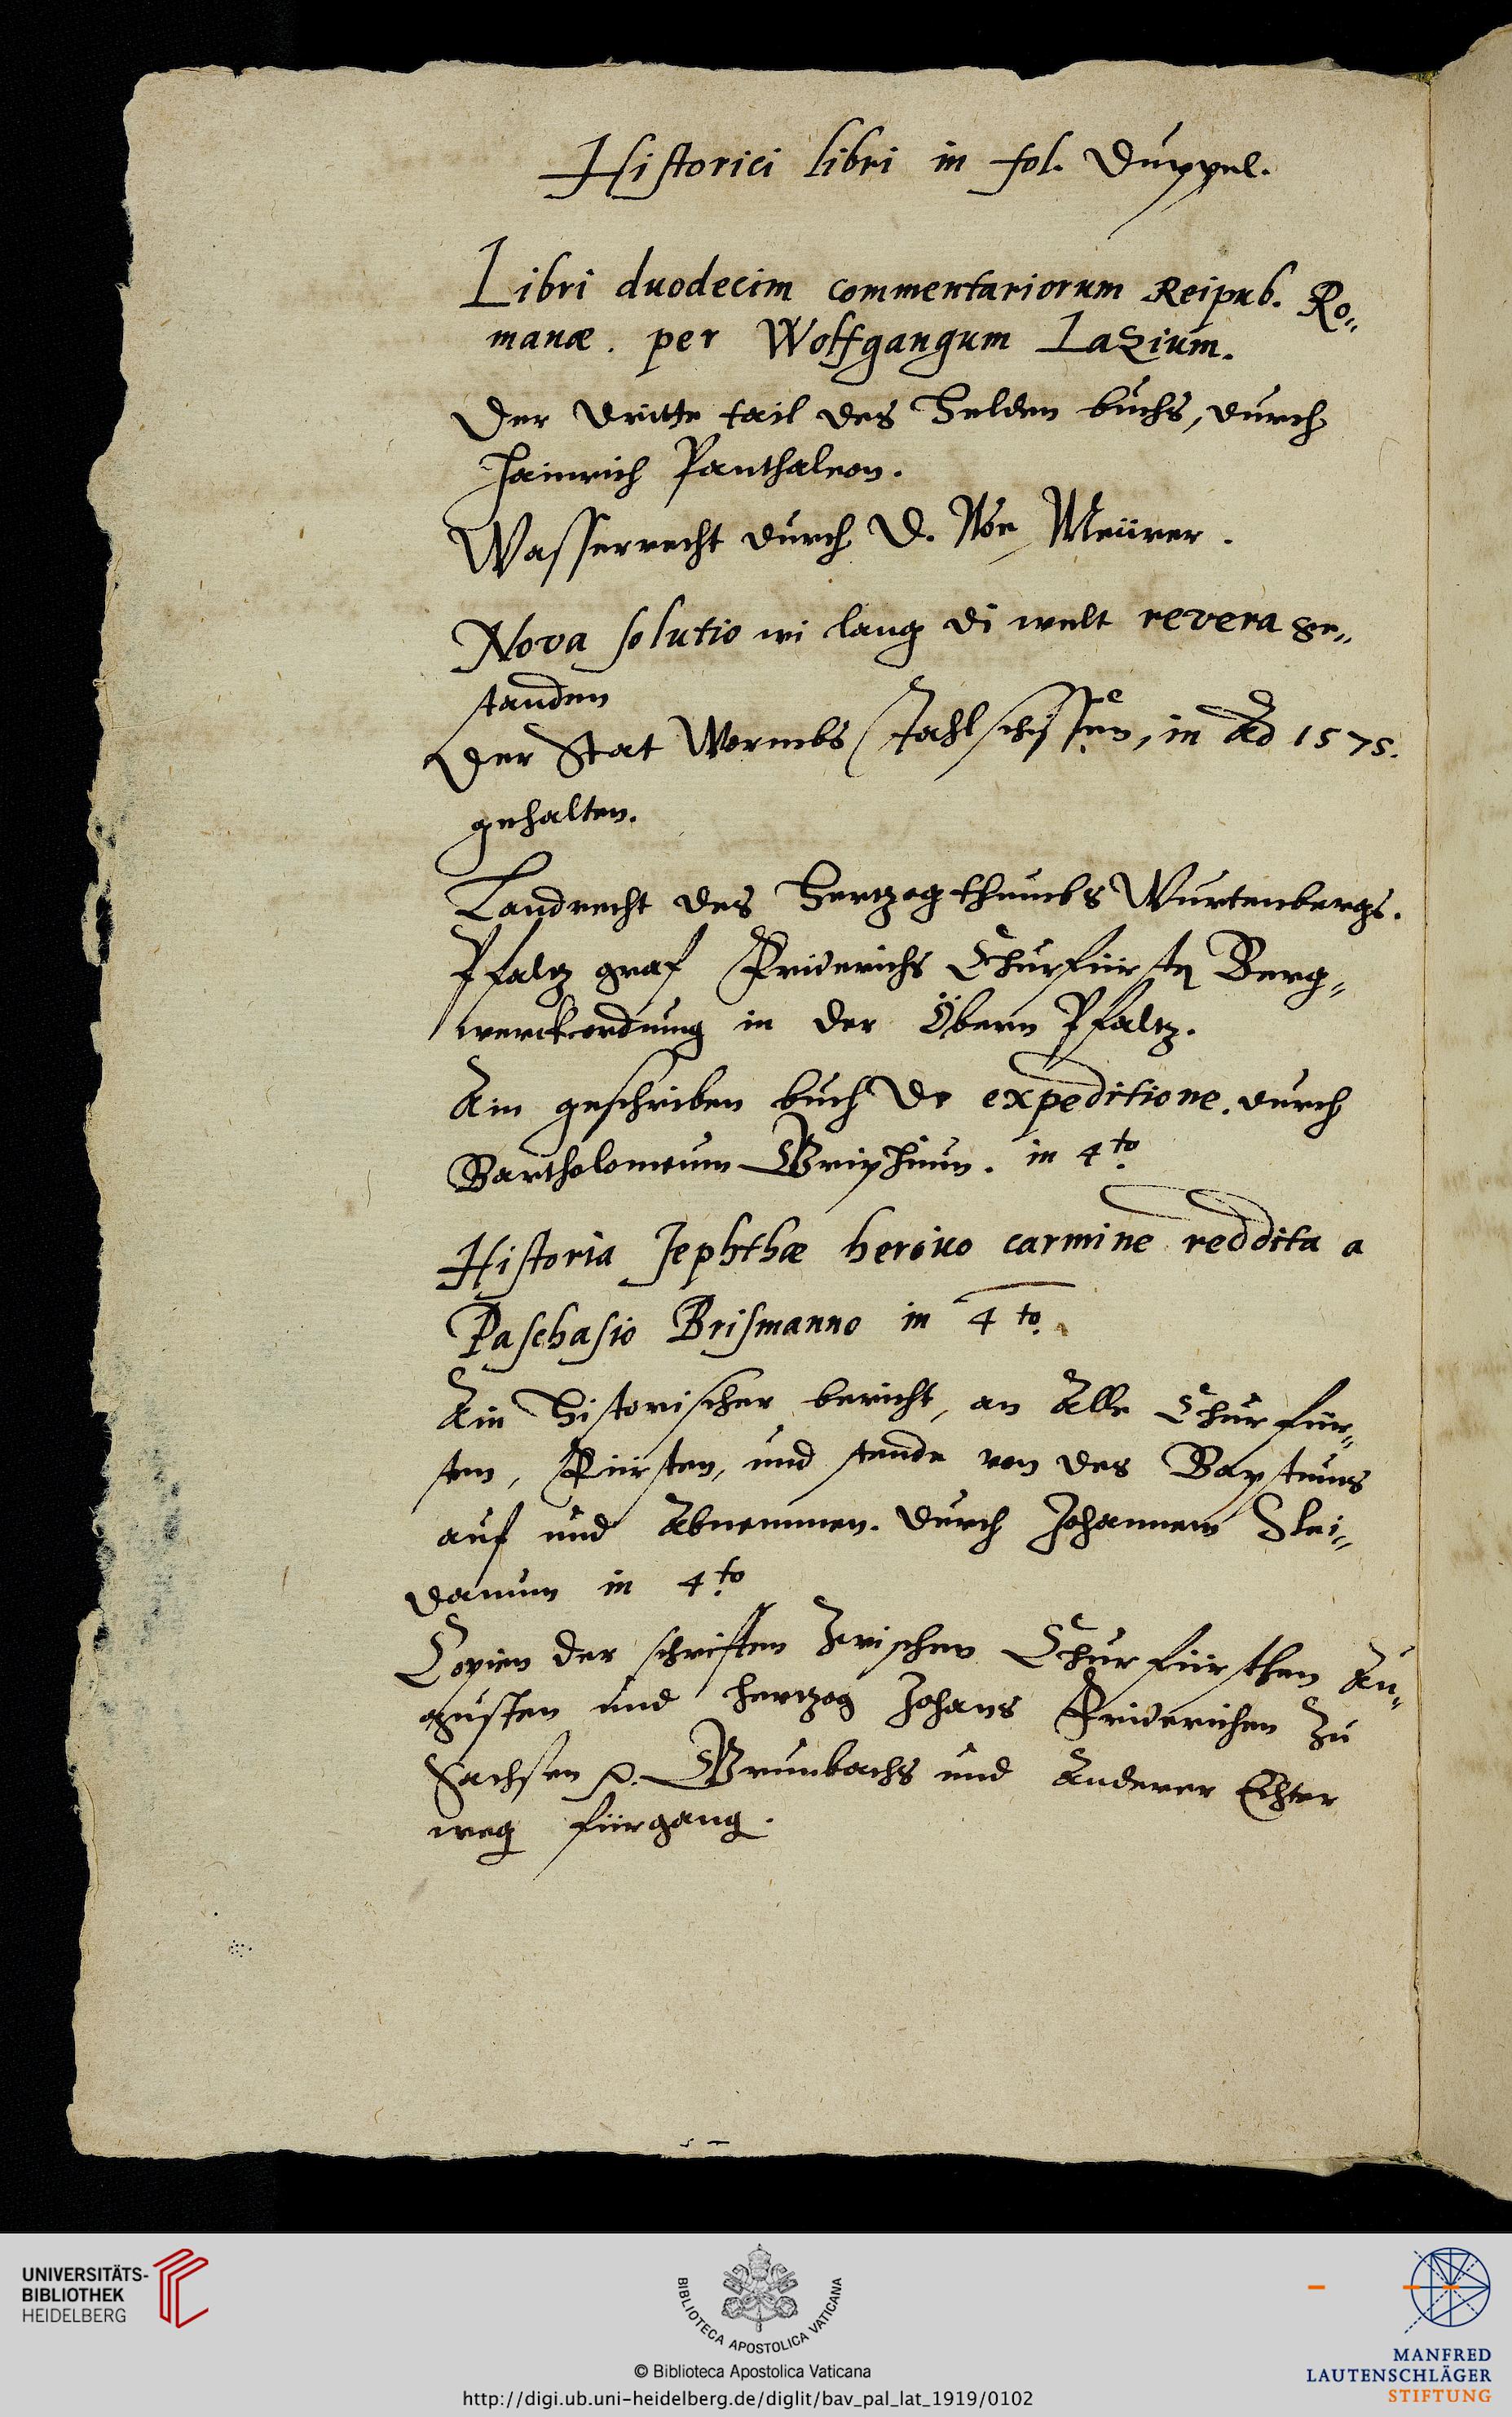 Historici libri in fol. duppel.
Libri duodecim commentariorum Reipub. Ro=
manæ. per Wolfgangum Lazium.
Der dritte tail des Helden buchs, durch
Hainrich Panthaleon.
Wasserrecht durch D. Noe Meürer.
Nova solutio wi lang di welt revera ge=
standen
Der Stat Wormbs Stahlschissen, in Ad 1575.
gehalten.
Landrecht des Hertzogthumbs Wurtenbergs.
Pfaltz graf Friderichs Churfürstn Berg=
werckordnung in der Öbern Pfaltz.
Ain geschriben buch de expeditione. durch
Bartholomeum Griphium. in 4to.
Historia Jephthæ heroico carmine reddita a
Paschasio Brismanno in 4to.
Ain Historischer bericht, an Alle Churfür=
sten, Fürsten, und stende von des Bapstums
auf und Abnemmen. durch Johannem Slei=
danum in 4to
Copien der schriften Zwischen Churfürsthen Au=
gusten und hertzog Johans Friderichen Zu
Sachsen Grumbachs und Anderer Echter
weg fürgang.
UNIVERSITÄTS-
BIBLIOTHEK
HEIDELBERG
BIBLIOTECA APOSTOLICA VATICANA
© Biblioteca Apostolica Vaticana
http://digi.ub.uni-heidelberg.de/diglit/bav_pal_lat_1919/0102
MANFRED
LAUTENSCHLÄGER
STIFTUNG